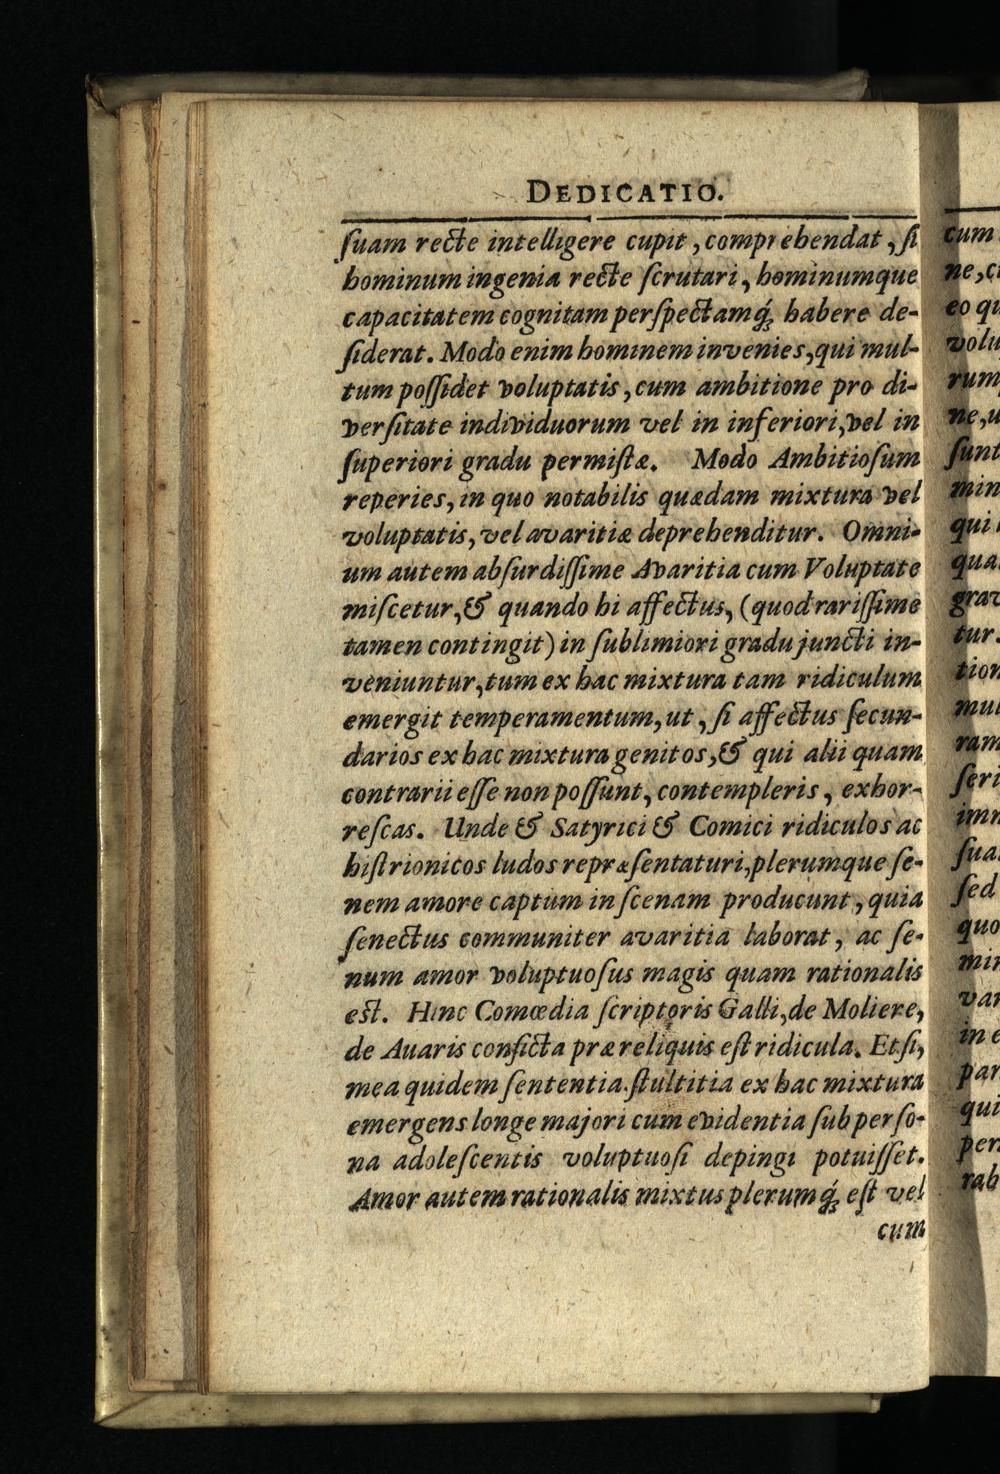 DEDICATIO.
ſuam recte intelligere cupit, comprehendat, ſi
hominum ingenia recte ſcrutari, hominumque
capacitatem cognitam perſpectamq́; habere de-
ſiderat. Modo enim hominem invenies, qui mul-
tum poſſidet voluptatis, cum ambitione pro di-
verſitate individuorum vel in inferiori, vel in
ſuperiori gradu permiſtæ. Modo Ambitioſum
reperies, in quo notabilis quædam mixtura vel
voluptatis, vel avaritiæ deprehenditur. Omni-
um autem abſurdiſſime Avaritia cum Voluptate
miſcetur, & quando hi affectus, (quod rariſſime
tamen contingit) in ſublimiori gradu juncti in-
veniuntur, tum ex hac mixtura tam ridiculum
emergit temperamentum, ut, ſi affectus ſecun-
darios ex hac mixtura genitos, & qui alii quam
contrarii eſſe non poſſunt, contempleris, exhor-
reſcas. Unde & Satyrici & Comici ridiculos ac
hiſtrionicos ludos repræſentaturi, plerumque ſe-
nem amore captum in ſcenam producunt, quia
ſenectus communiter avaritia laborat, ac ſe-
num amor voluptuoſus magis quam rationalis
eſt. Hinc Comœdia ſcriptoris Galli, de Moliere,
de Avaris conficta præ reliquis eſt ridicula. Etſi,
mea quidem ſententia ſtultitia ex hac mixtura
emergens longe majori cum evidentia ſub perſo-
na adoleſcentis voluptuoſi depingi potuiſſet.
Amor autem rationalis mixtus plerumq́; eſt vel
cum
cum
ne, c
eo qu
volu
rum
ne, u
ſunt
min
qui
qua
grav
tur.
tion
mul
ram
ſeri
imn
ſua
ſed
quo
min
var
in e
par
qui
per
rab